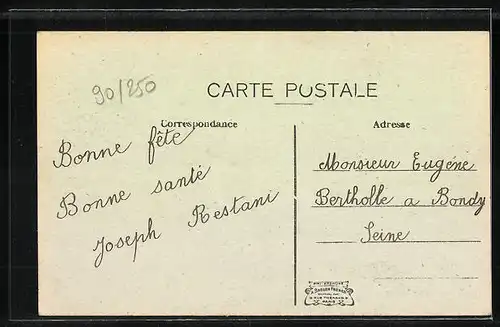 90/250
CARTE POSTALE
Correspondance
Adresse
Bonne fête
Bonne santé
Joseph Restani
Monsieur Eugéne
Bertholle a Bondy
Seine
PARIS